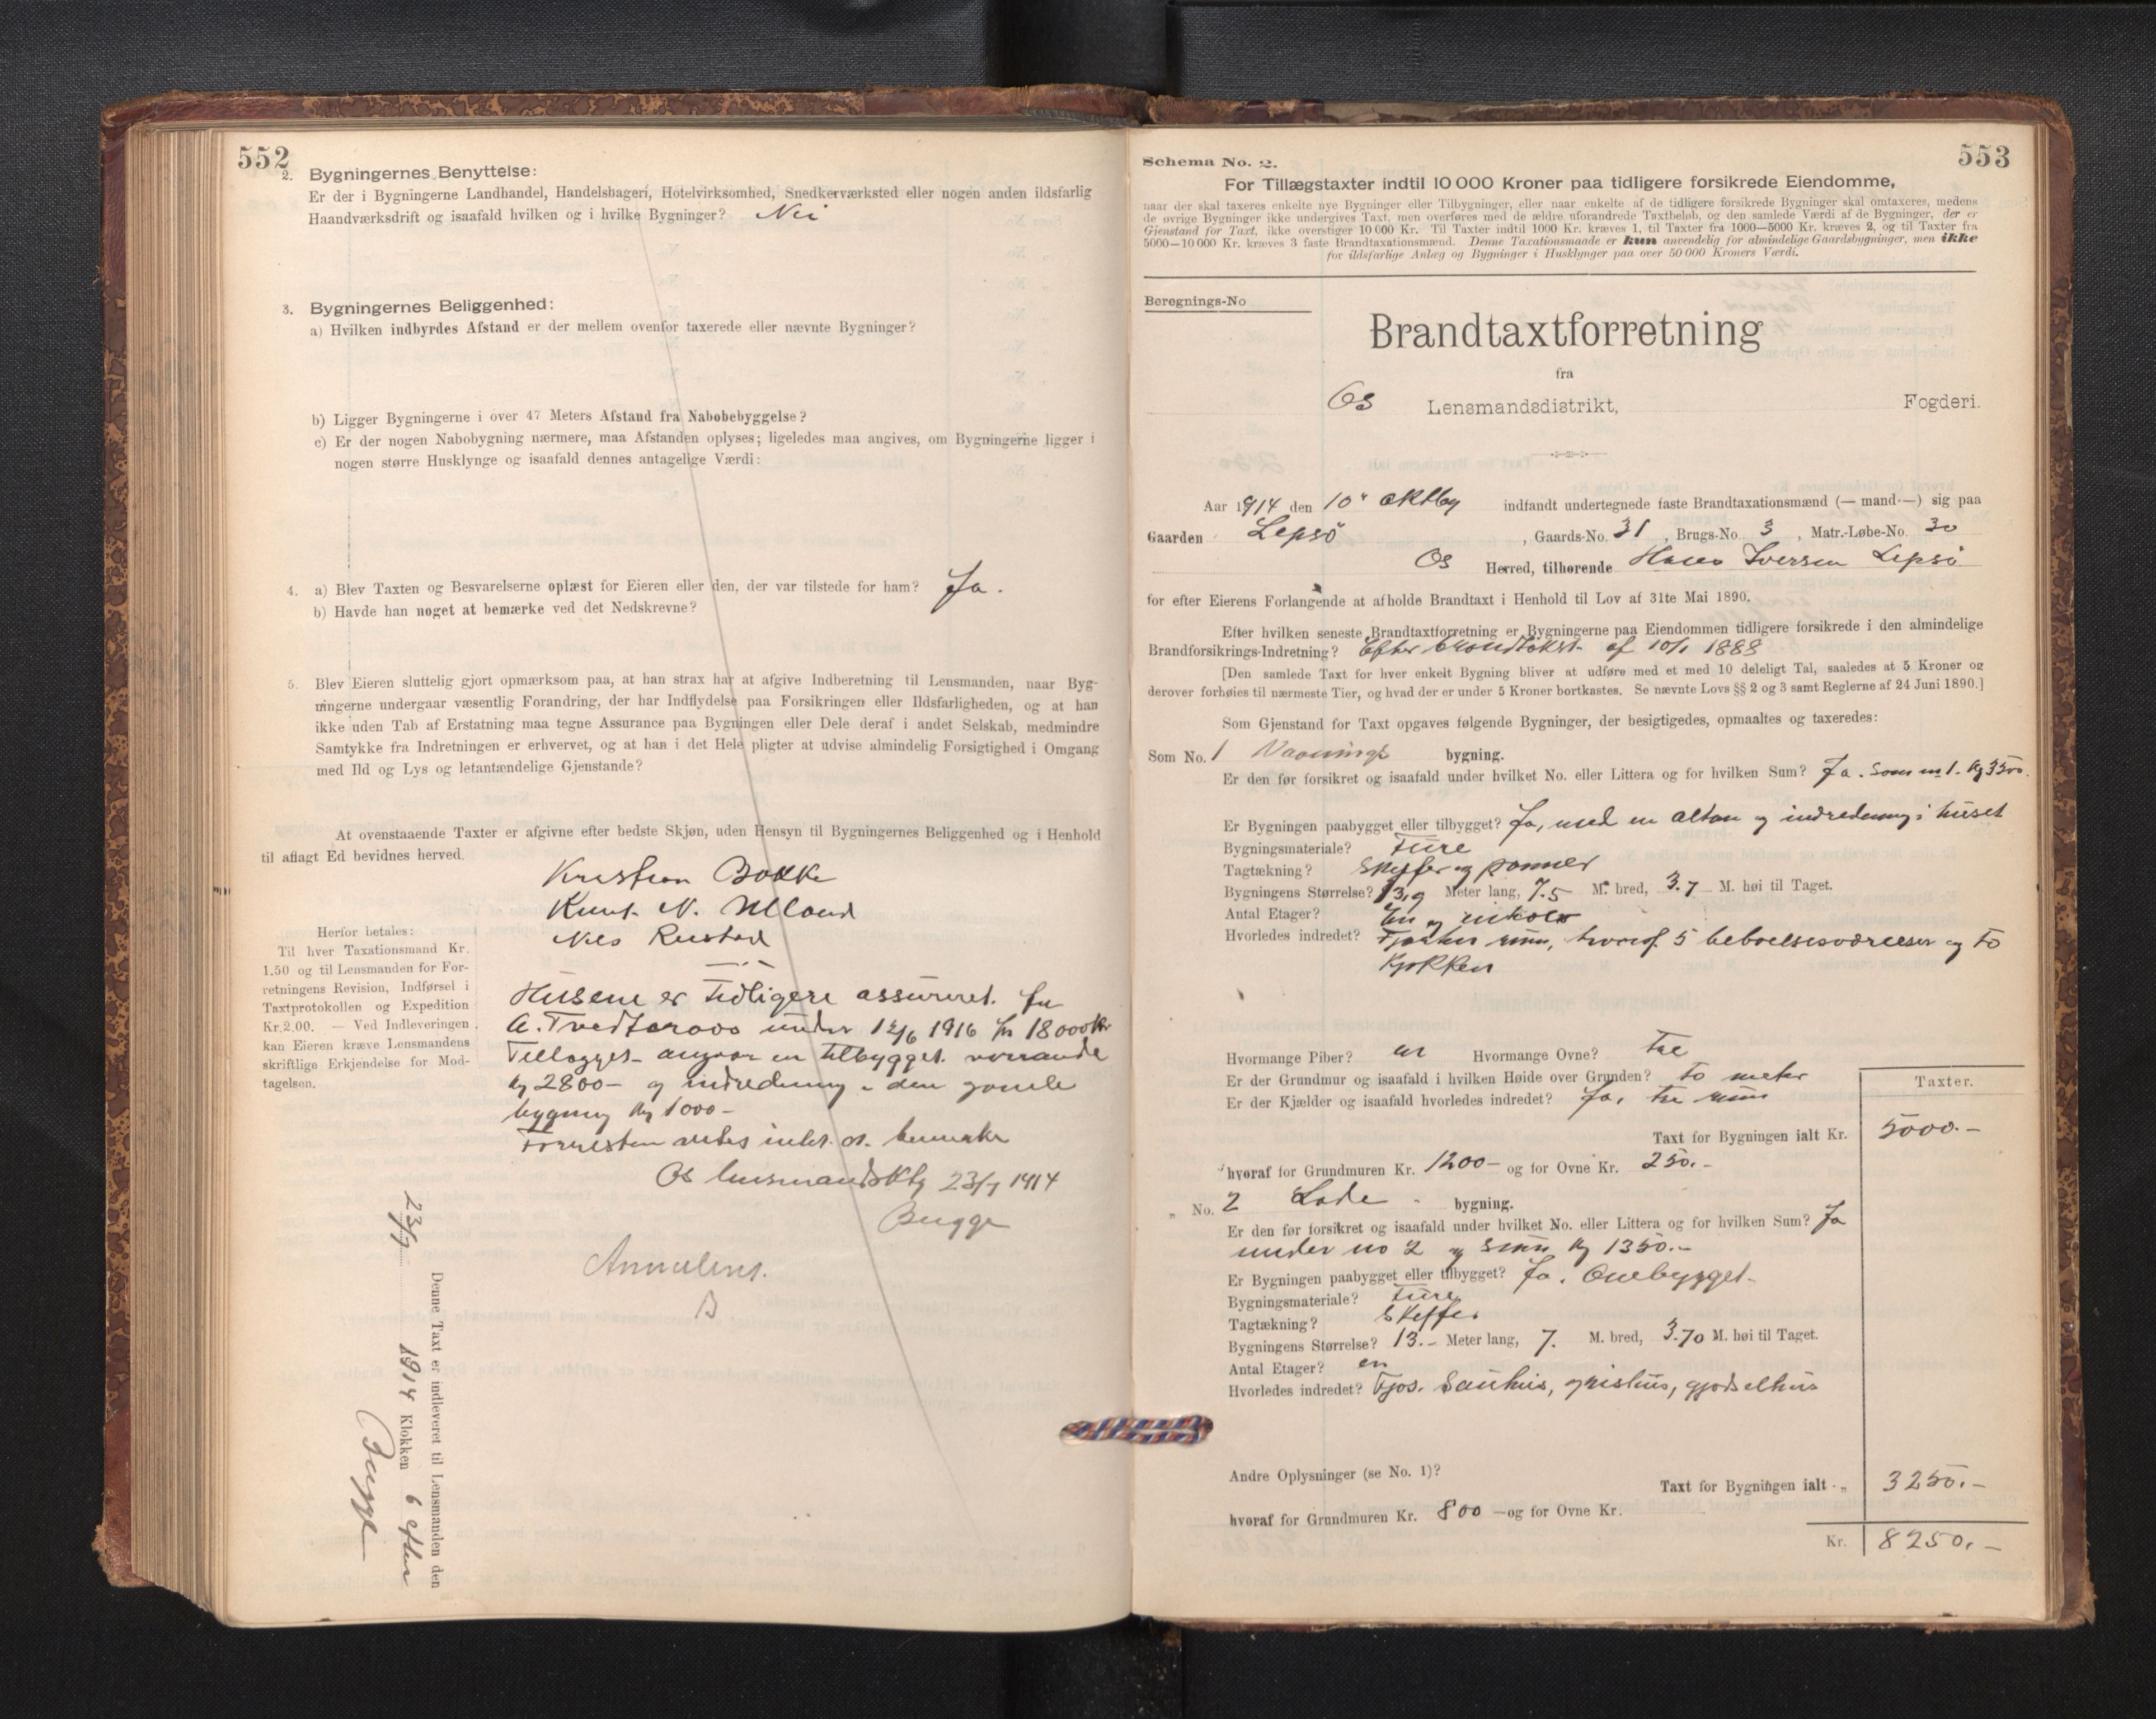 552
2. Bygningernes Benyttelse:
Er der i Bygningerne Landhandel, Handelsbageri, Hotelvirksomhed, Snedkerværksted eller nogen anden ildsfarlig
Haandværksdrift og isaafald hvilken og i hvilke Bygninger? Nei
3. Bygningernes Beliggenhed:
a) Hvilken indbyrdes Afstand er der mellem ovenfor taxerede eller nævnte Bygninger?
b) Ligger Bygningerne i over 47 Meters Afstand fra Nabobebyggelse?
c) Er der nogen Nabobygning nærmere, maa Afstanden oplyses; ligeledes maa angives, om Bygningerne ligger i
nogen større Husklynge og isaafald dennes antagelige Værdi:
4. a) Blev Taxten og Besvarelserne oplæst for Eieren eller den, der var tilstede for ham? Ja.
b) Havde han noget at bemærke ved det Nedskrevne?
5. Blev Eieren sluttelig gjort opmærksom paa, at han strax har at afgive Indberetning til Lensmanden, naar Byg-
ningerne undergaar væsentlig Forandring, der har Indflydelse paa Forsikringen eller Ildsfarligheden, og at han
ikke uden Tab af Erstatning maa tegne Assurance paa Bygningen eller Dele deraf i andet Selskab, medmindre
Samtykke fra Indretningen er erhvervet, og at han i det Hele pligter at udvise almindelig Forsigtighed i Omgang
med Ild og Lys og letantændelige Gjenstande?
At ovenstaaende Taxter er afgivne efter bedste Skjøn, uden Hensyn til Bygningernes Beliggenhed og i Henhold
til aflagt Ed bevidnes herved.
Kristian
Knut N. Ulland
Nils
Herfor betales:
Til hver Taxationsmand Kr.
1.50 og til Lensmanden for For-
retningens Revision, Indførsel i
Taxtprotokollen og Expedition
Kr. 2,00. — Ved Indleveringen
kan Eieren kræve Lensmandens
skriftlige Erkjendelse for Mod-
tagelsen.
Husene er tidligere assureret.
under 12/6 1916 for 18000 Kr
angaar en tilbygget
Kr 2800- og indredning i den gamle
bygning Kr 1000-
Forresten vides intet at bemærke
Os lensmandsktr 23/7 1914
Bugge
Annuleret.
B
Denne Taxt er indleveret til Lensmanden den
23/7 1914 Klokken 6 efterm
Bugge
553
Schema No. 2.
For Tillægstaxter indtil 10 000 Kroner paa tidligere forsikrede Eiendomme,
naar der skal taxeres enkelte nye Bygninger eller Tilbygninger, eller naar enkelte af de tidligere forsikrede Bygninger skal omtaxeres, medens
de øvrige Bygninger ikke undergives Taxt, men overføres med de ældre uforandrede Taxtbeløb, og den samlede Værdi af de Bygninger, der er
Gjenstand for Taxt, ikke overstiger 10 000 Kr. Til Taxter indtil 1000 Kr. kræves 1, til Taxter fra 1000—5000 Kr. kræves 2, og til Taxter fra
5000—10 000 Kr. kræves 3 faste Brandtaxationsmænd. Denne Taxationsmaade er kun anvendelig for almindelige Gaardsbygninger, men ikke
for ildsfarlige Anlæg og Bygninger i Husklynger paa over 50 000 Kroners Værdi.
Beregnings-No
Brandtaxtforretning
fra
Os Lensmandsdistrikt, Fogderi.
Aar 1914 den 10 indfandt undertegnede faste Brandtaxationsmænd (— mand —) sig paa
Gaarden Lepsö, Gaards-No. 31, Brugs-No. 3, Matr.-Løbe-No. 30
Os Herred, tilhørende Hans Iversen Lepsö
for efter Eierens Forlangende at afholde Brandtaxt i Henhold til Lov af 31te Mai 1890.
Efter hvilken seneste Brandtaxtforretning er Bygningerne paa Eiendommen tidligere forsikrede i den almindelige
Brandforsikrings-Indretning? Efter brandtakst af 10/1 1888
[Den samlede Taxt for hver enkelt Bygning bliver at udføre med et med 10 deleligt Tal, saaledes at 5 Kroner og
derover forhøies til nærmeste Tier, og hvad der er under 5 Kroner bortkastes. Se nævnte Lovs §§ 2 og 3 samt Reglerne af 24 Juni 1890.]
Som Gjenstand for Taxt opgaves følgende Bygninger, der besigtigedes, opmaaltes og taxeredes:
Som No. 1 Vaanings bygning.
Er den før forsikret og isaafald under hvilket No. eller Littera og for hvilken Sum? Ja. Som no 1. Kr 3500.
Er Bygningen paabygget eller tilbygget? Ja, med en altan og indredning i huset
Bygningsmateriale? Ture
Tagtækning? Skiffer og panner
Bygningens Størrelse? 13,9 Meter lang, 7.5 M. bred, 3.7 M. høi til Taget.
Antal Etager? En og
Hvorledes indredet? rum, hvoraf 5 beboelsesværelser og to
Kjøkken
Hvormange Piber? en Hvormange Ovne? tre
Er der Grundmur og isaafald i hvilken Høide over Grunden? to meter
Er der Kjælder og isaafald hvorledes indredet? Ja, tre rum
Taxter.
Taxt for Bygningen ialt Kr. 5000.-
hvoraf for Grundmuren Kr. 1200- og for Ovne Kr. 250.-
„ No. 2 Lade - bygning.
Er den før forsikret og isaafald under hvilket No. eller Littera og for hvilken Sum? Ja
under no 2 og sum Kr 1350.-
Er Bygningen paabygget eller tilbygget? Ja. Ombygget-
Bygningsmateriale? Ture
Tagtækning? Skiffer
Bygningens Størrelse? 13.- Meter lang, 7. M. bred, 3.70 M. høi til Taget.
Antal Etager? en
Hvorledes indredet? Fjøs. Sauhus, grishus, gjødselhus
Andre Oplysninger (se No. 1)?
Taxt for Bygningen ialt „ 3250.-
hvoraf for Grundmuren Kr. 800 — og for Ovne Kr.
Kr. 8250.-